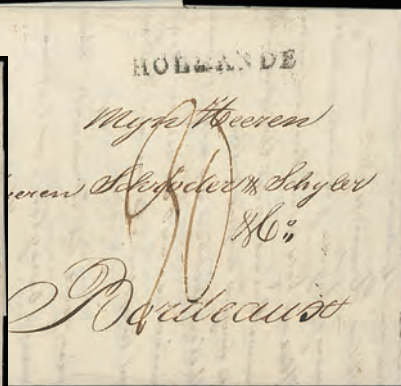 HOLLANDE
Myn Heeren
eeren Schröder & Schyler
& Co:
Bordeaux